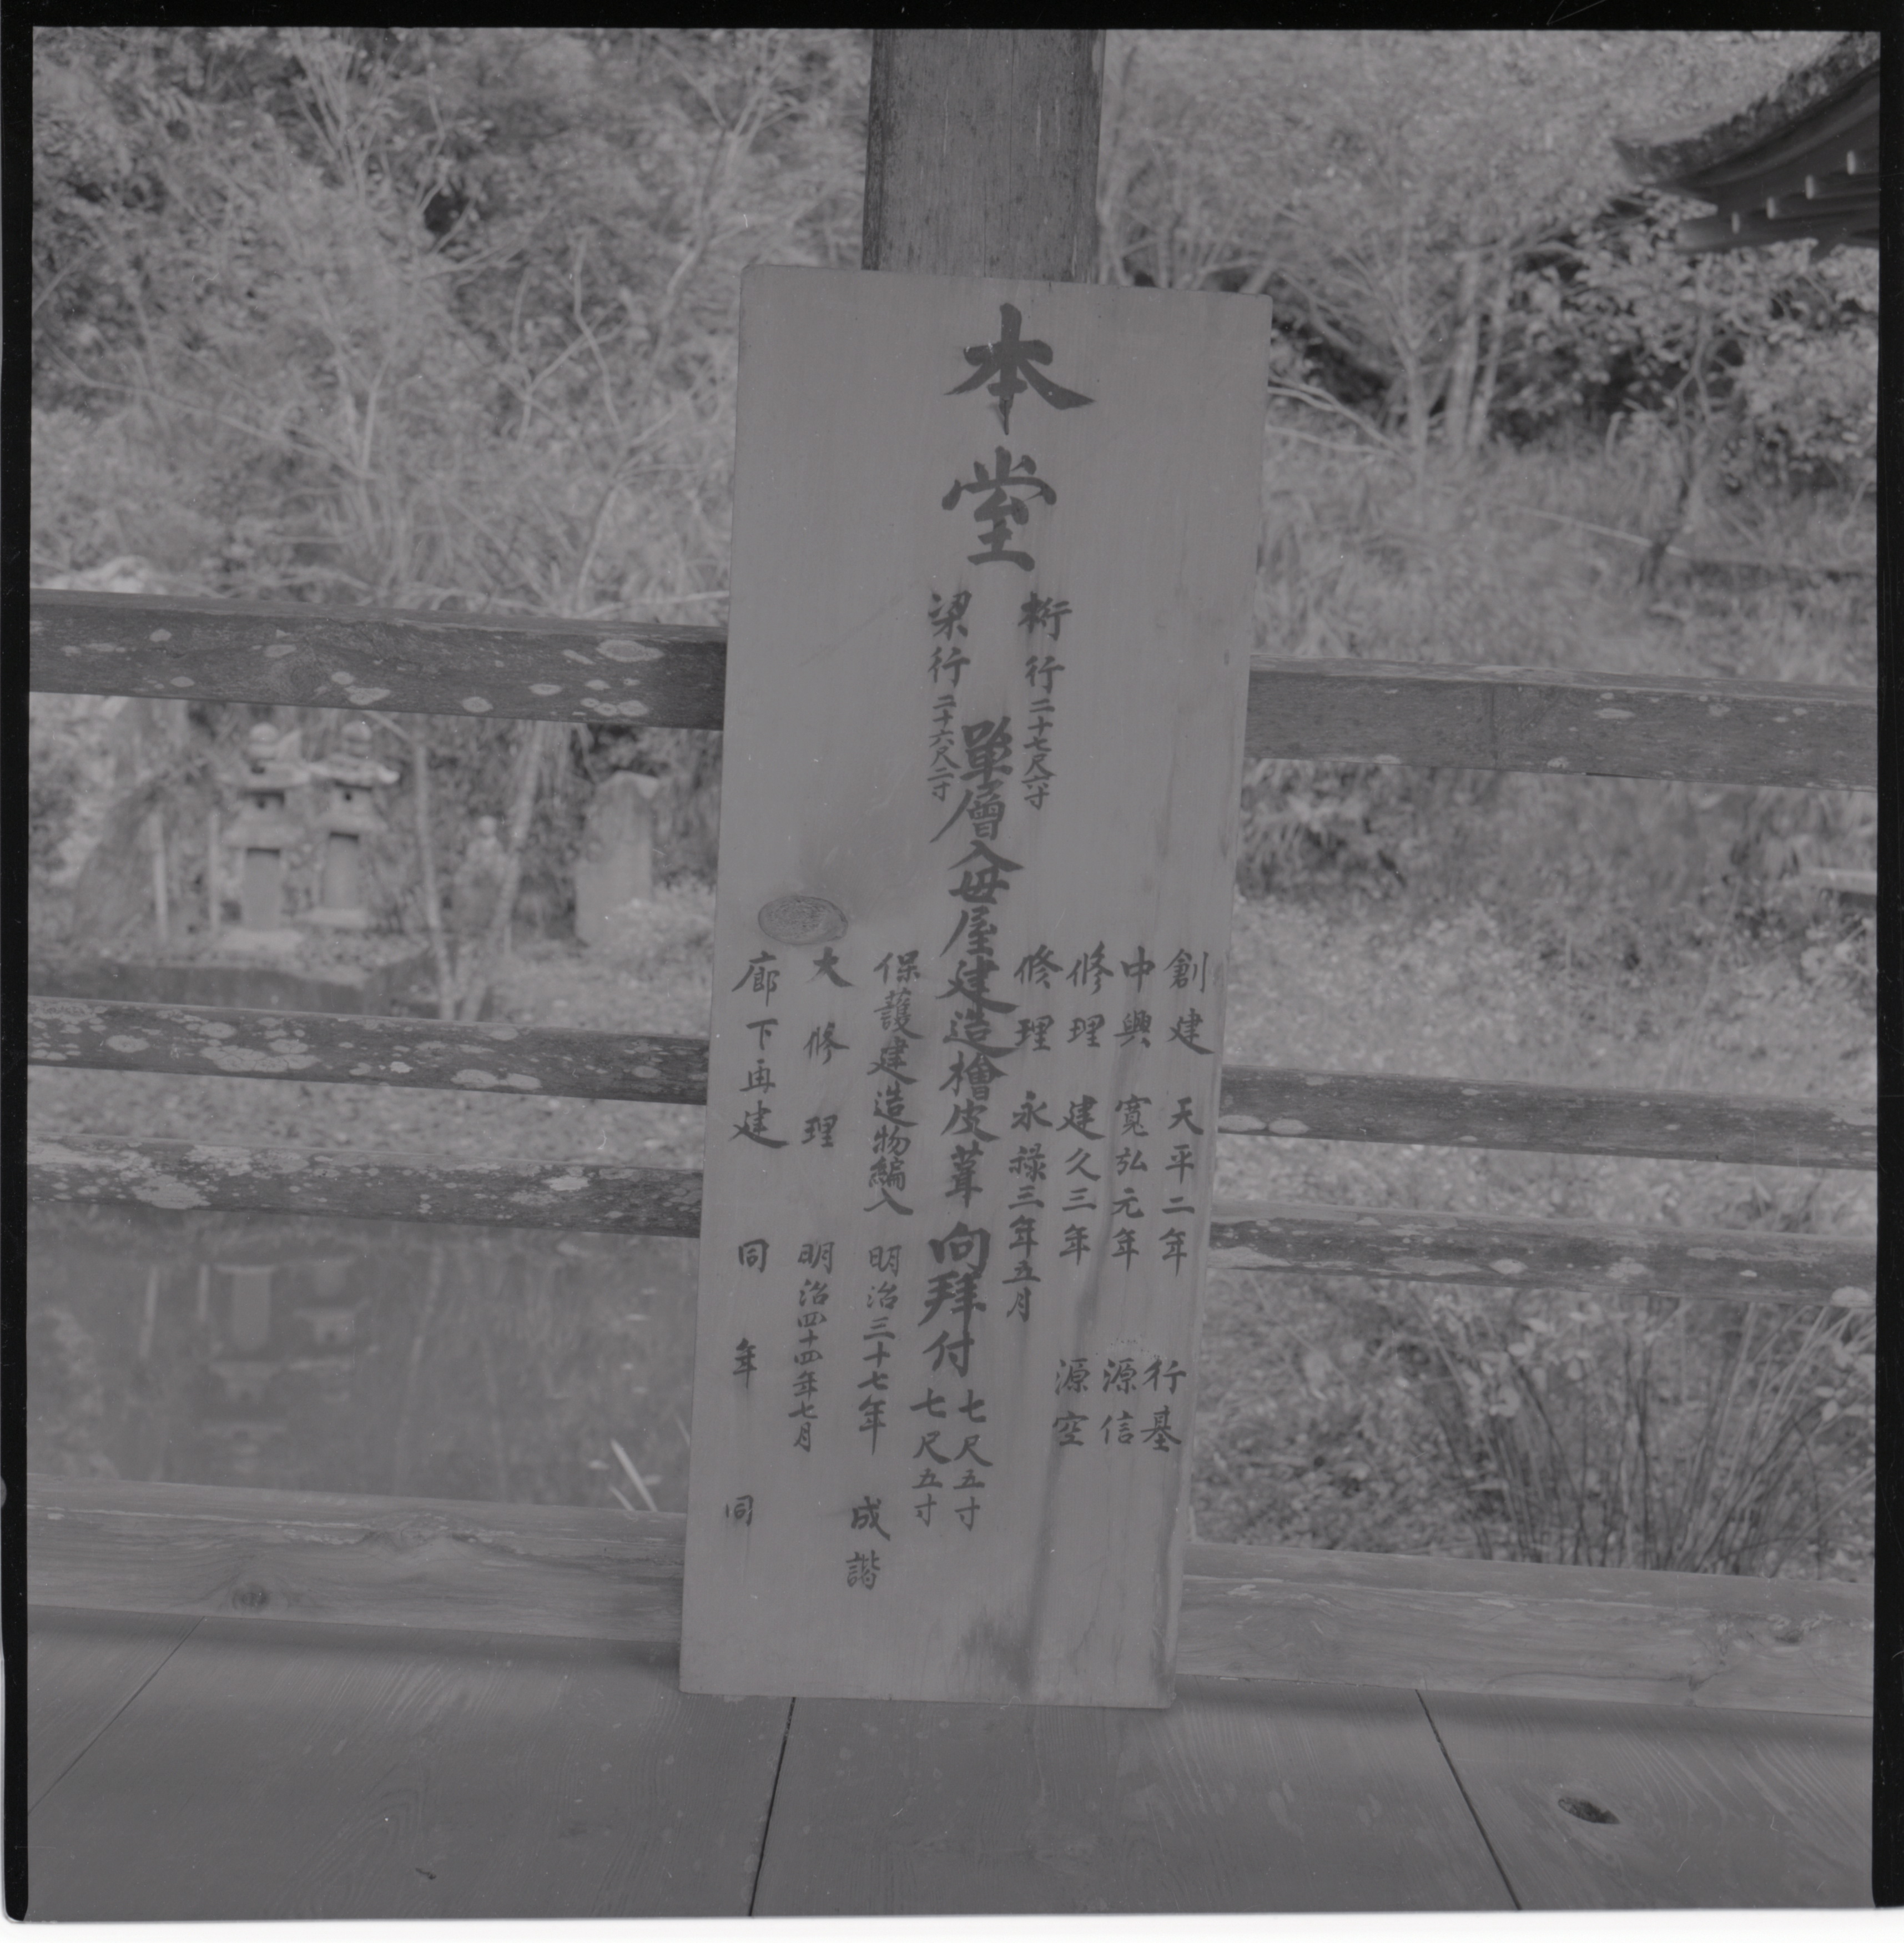 本堂
桁行二十七尺六寸
梁行二十六尺二寸
單層入母屋建造檜皮葺向拜付
七尺五寸
七尺五寸
創建 天平二年 行基
中興 寛弘元年 源信
修理 建久三年 源空
修理 永禄三年五月
保護建造物編入 明治三十七年 成諧
大修理 明治四十四年七月
廊下再建 同年 同